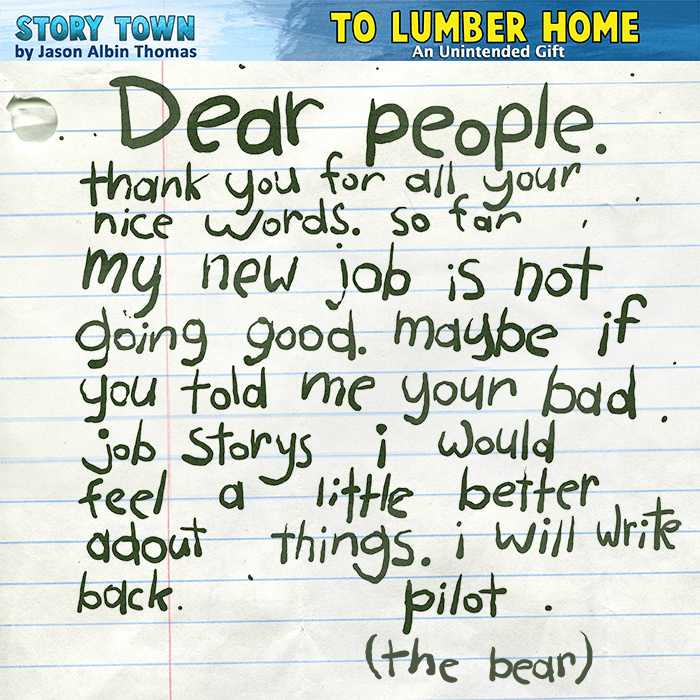 STORY TOWN
by Jason Albin Thomas
TO LUMBER HOME
An Unintended Gift
Dear people.
thank you for all your
nice words. so far
my new job is not
going good. maybe if
you told me your bad
job storys i would
feel a little better
adout things. i will write
back. pilot.
(the bear)